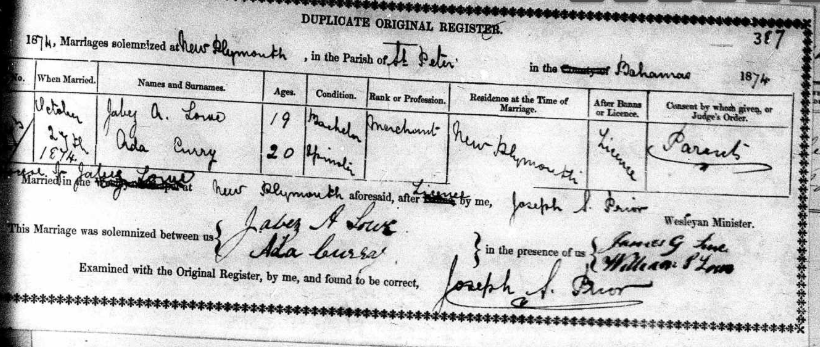 DUPLICATE ORIGINAL REGISTER.
387
1874, Marriages solemnized at New Plymouth, in the Parish of St Peter in the County of Bahamas 1874
No. When Married. Names and Surnames. Ages. Condition. Rank or Profession. Residence at the Time of Marriage. After Banns or Licence. Consent by whom given, or Judge's Order.
October 27th 1874. Jabez A. Lowe 19 Bachelor Merchant New Plymouth Licence Parents
Ada Curry 20 Spinster
House of Jabez Lowe
Married in the at New Plymouth aforesaid, after Licence by me, Joseph S. Prior
Wesleyan Minister.
This Marriage was solemnized between us { Jabez A Lowe
Ada Curry } in the presence of us { James G
William P Lowe
Examined with the Original Register, by me, and found to be correct, Joseph S. Prior